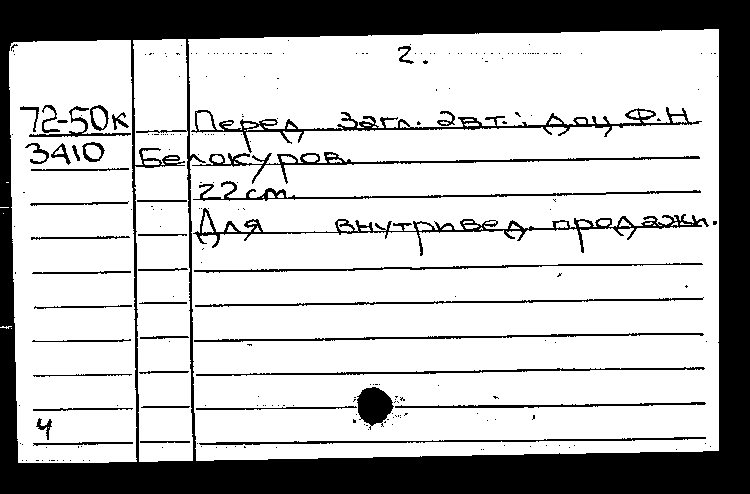 2.
72-50к Перед загл. авт.: доц. Ф.Н
3410 Белокуров.
22 cm.
Для внутривед. продажи.
4